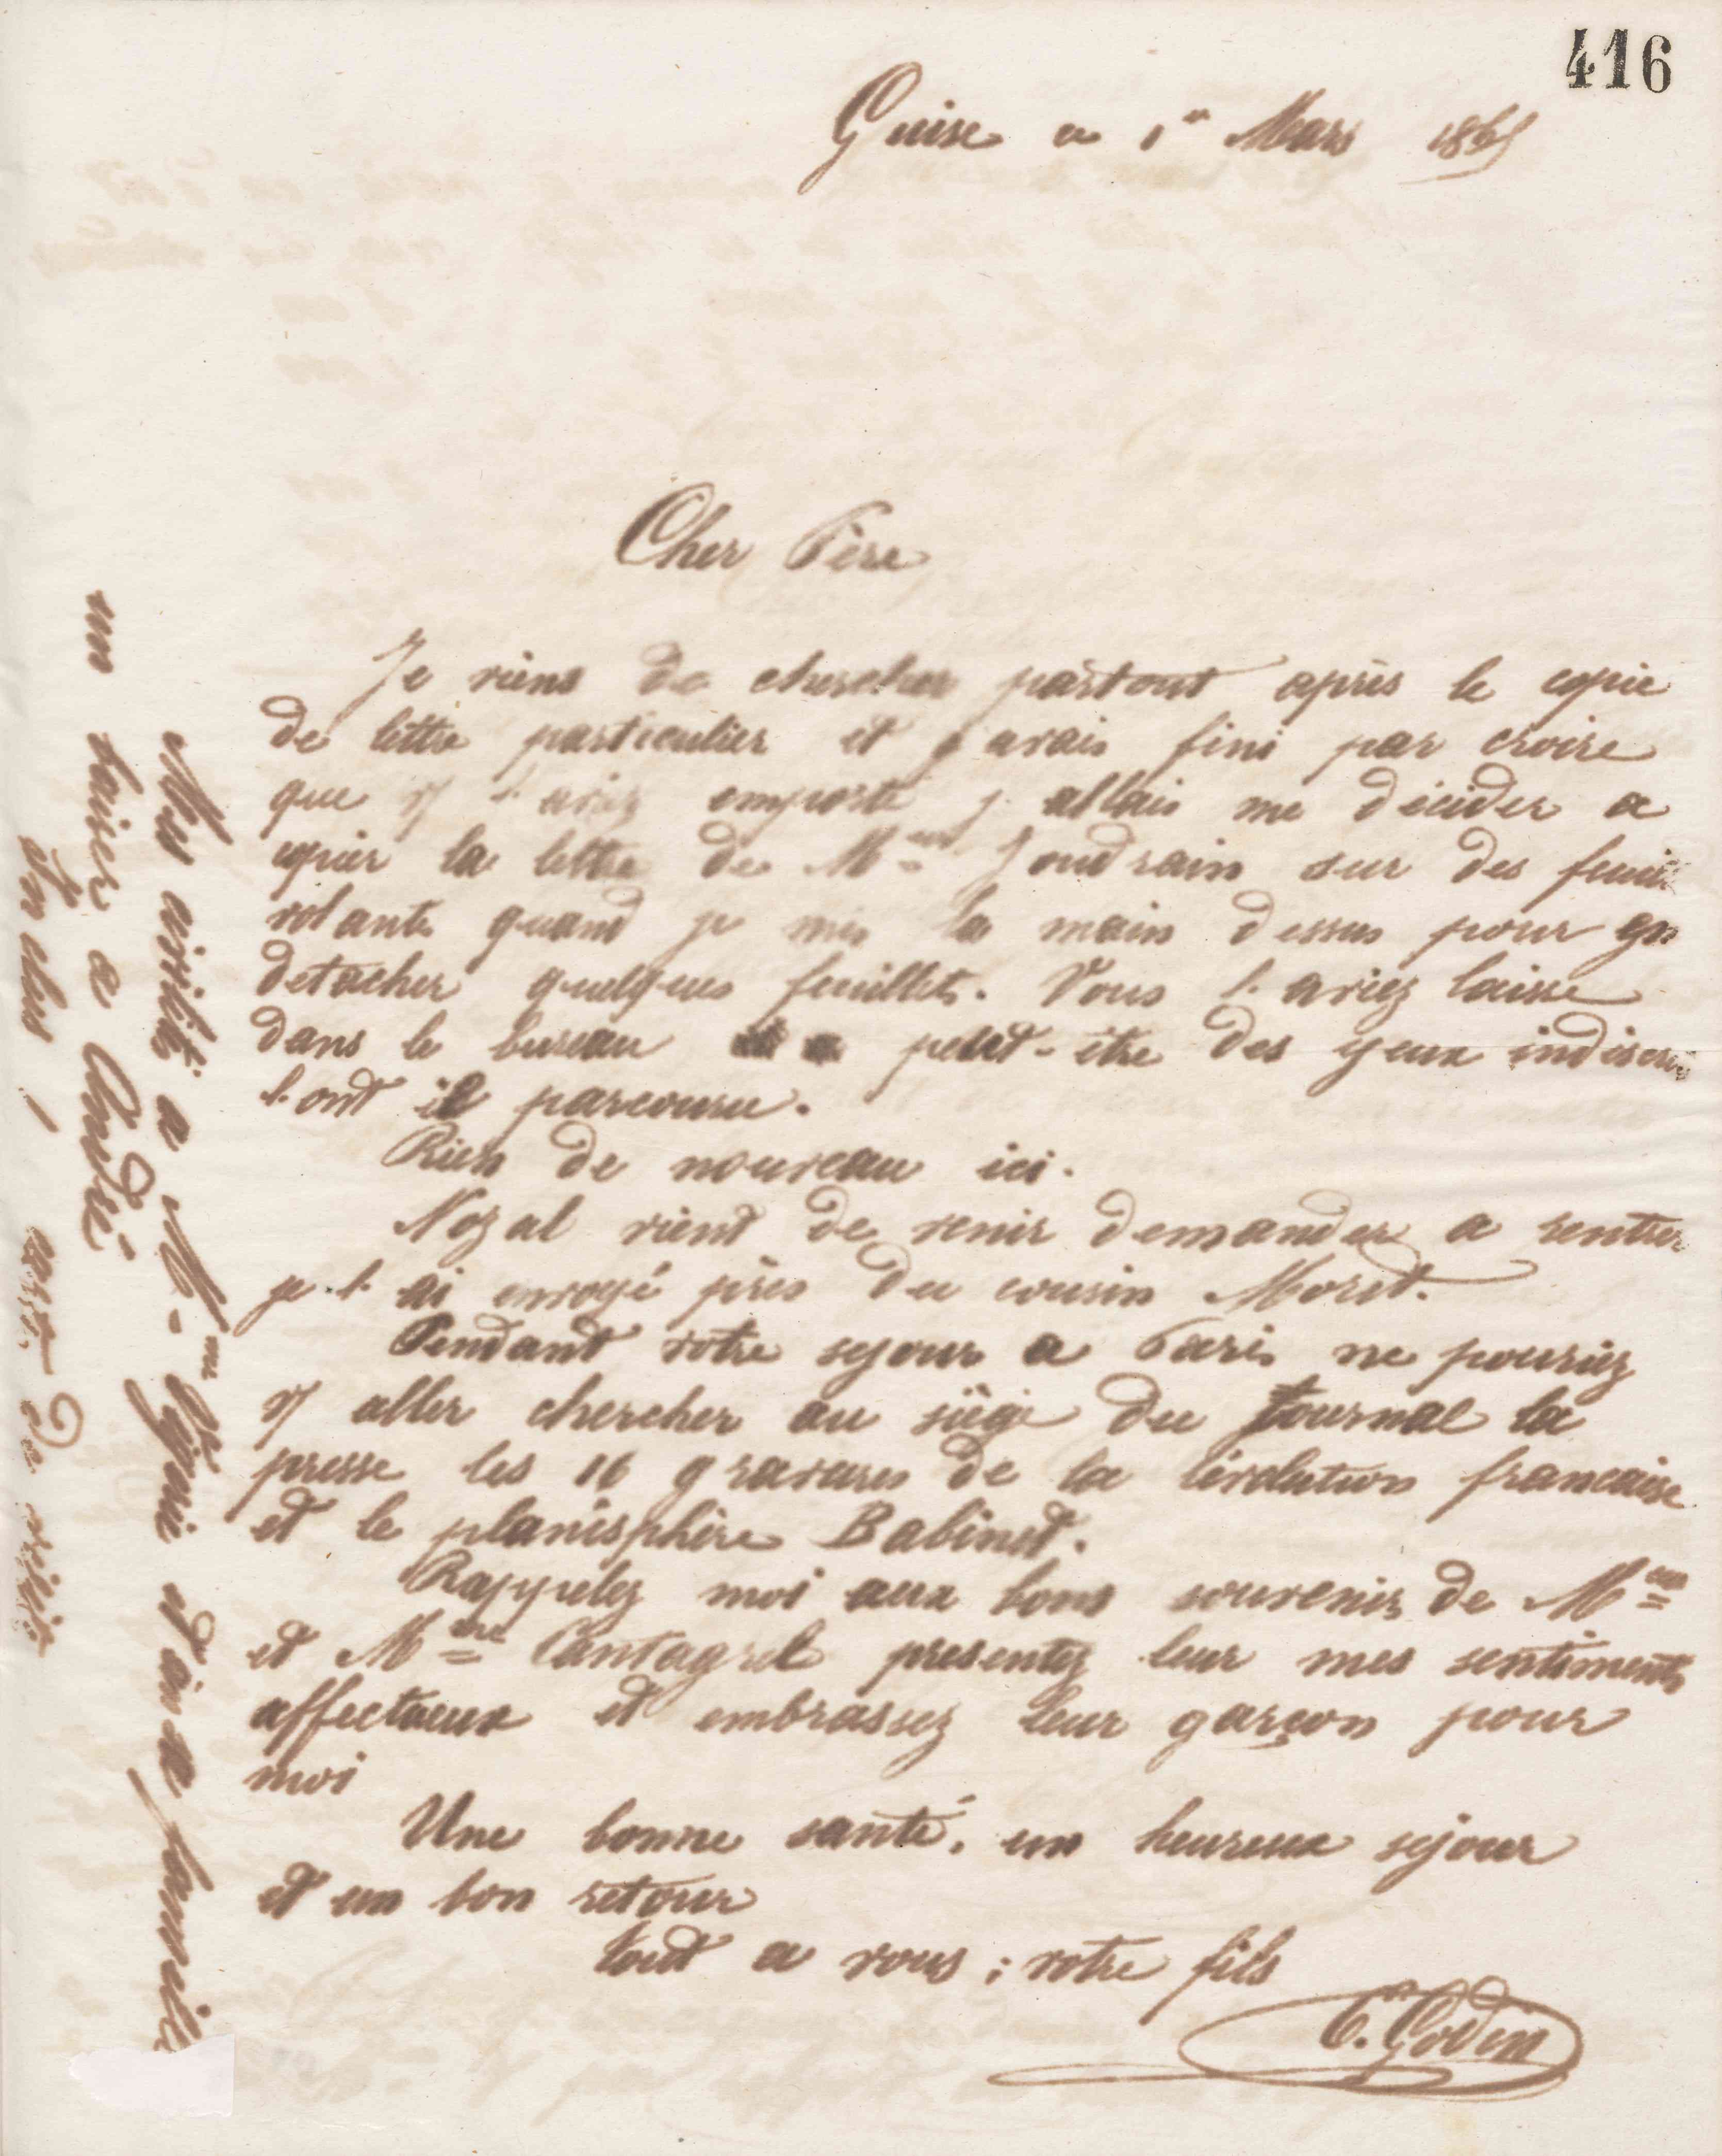 416
Guise ce 1er Mars 1865
Cher Père
Je viens de chercher partout après le copie
de lettre particulier et j avais fini par croire
que v/ l'aviez emporté j allais me décider a
copier la lettre de Mr= Joudrain sur des
volants quand je mis la main dessus pour
detacher quelques feuillets. Vous l'aviez laisse
dans le bureau peut-être des yeux
l'ont il parcouru.
Rien de nouveau ici.
Nozal vient de venir demander a rentrer
je l'ai envoyé près du cousin Moret.
Pendant votre sejour a Paris ne pouriez
v/ aller chercher au siège du Journal la
presse les 16 gravures de la révolution francaise
et le planisphère Babinet.
Rappelez moi aux bons souvenirs de Mr=
et Mme= Cantagrel presentez leur mes sentiments
affectueux et embrassez leur garçon pour
moi
Une bonne santé, un heureux sejour
et un bon retour
tout a vous ; votre fils
E. Godin
Mes civilités a Mme et à sa famille
un baiser a André